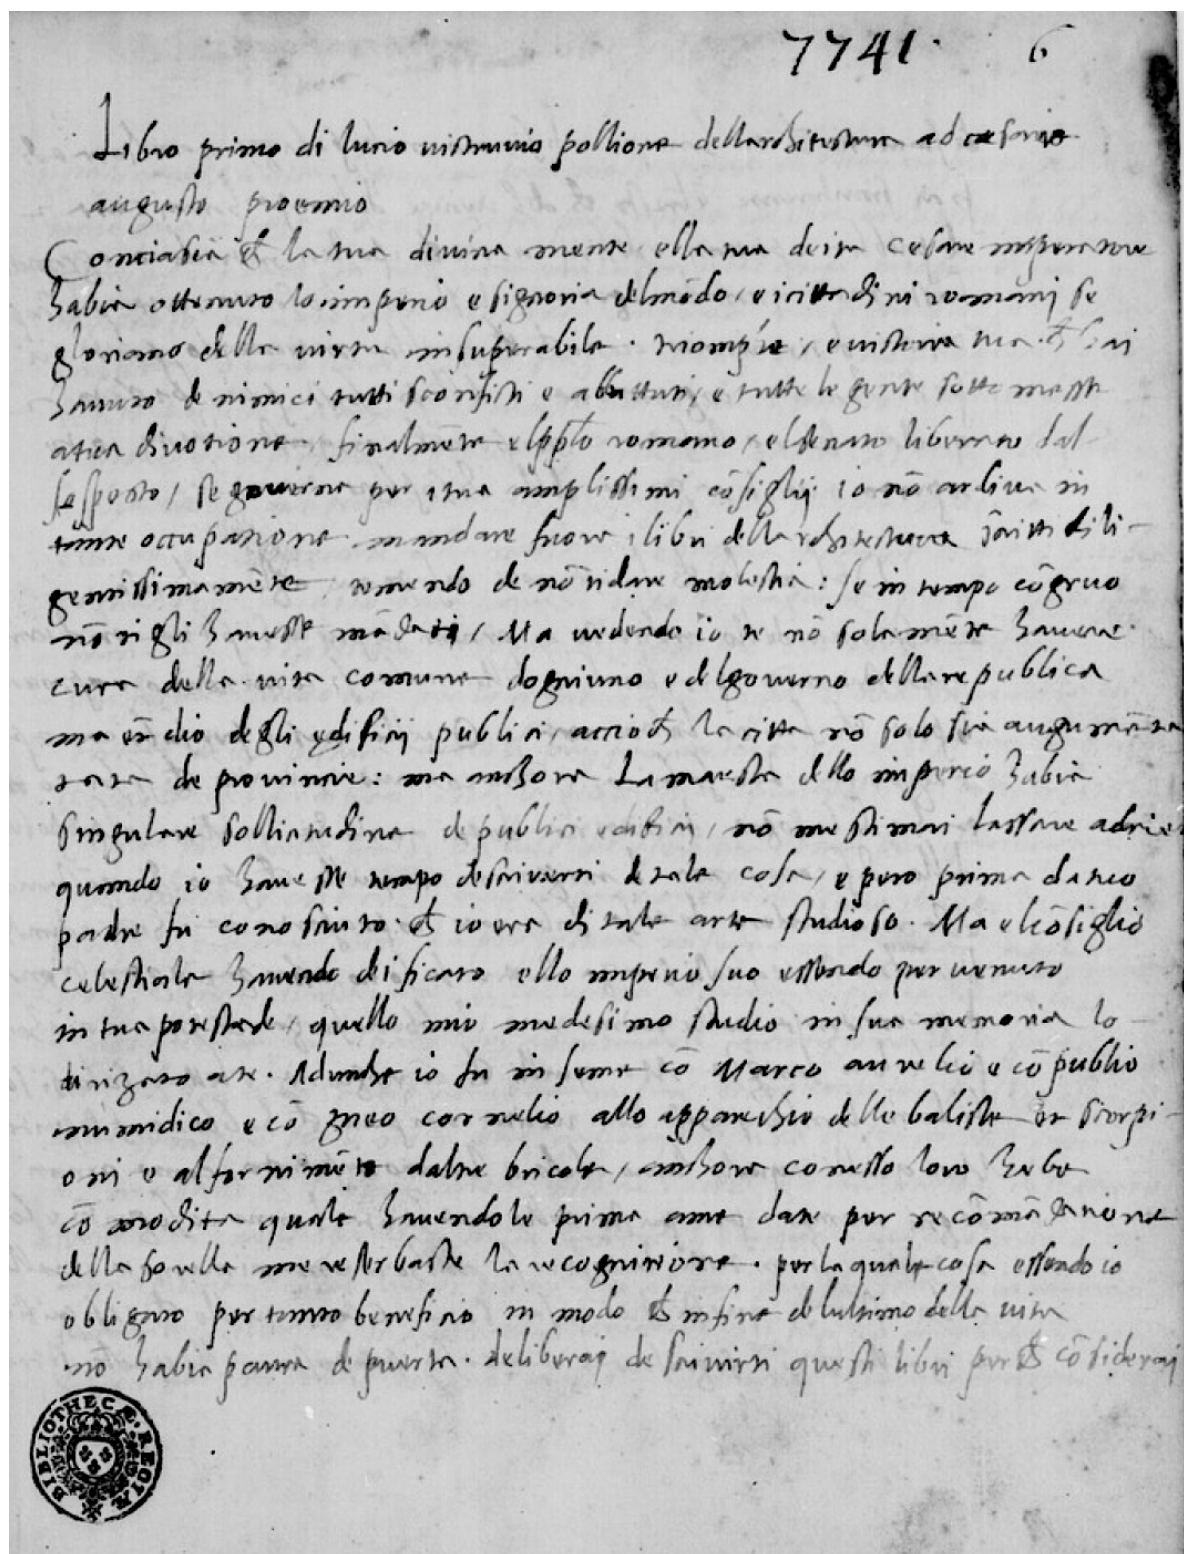 7741 6
Libro primo di lucio uictruuio pollione dellarchitectura ad cesario
augusto proemio
Conciasia che la tua diuina mente ella tua deita cesare imperatore
habia ottenuto lo imperio e signoria del mōdo / e i cittadini romanj se
gloriano della uirtu insuperabile . triomphe / e uictoria tua che hai
hauuto de nimici tutti sconficti e abbattuti / e tutte le gente sottomesse
atua diuotione / finalmēte elpplo romano / elsenato liberato dal
sospecto / se gouerna per i tua amplissimi cōsiglij io nō ardiua in
tante occupatione mandare fuore i libri dellarchitectura scritti dili-
gentissimamēte temendo de nō ti dare molestia : se in tempo cōgruo
nō ti gli hauesse mādati / Ma uedendo io te nō solamēte hauere
cura della uita comune dogniuno e delgouerno dellarepublica
ma etdio degli edificij publici / acciochè la citta nō solo sia augumēta
tata de prouincie : ma anchora La maesta dello imperio habia
singulare sollicitudine de publici edificij / nō me stimai lassare adrie
quando io hauesse tempo descriuerti de tale cosa / e pero prima da tuo
padre fu conosciuto che io era di tale arte studioso . Ma el cōsiglio
celestiale hauendo deificato ello imperio suo essendo peruenuto
in tua potestade / quello mio medesimo studio in sua memoria lo
dirizato ate . Adunche io fu inseme cō Marco aurelio e cō publio
numidico e cō gneo cornelio allo apparechio delle baliste et scorpi-
oni e al fornimēto daltre bricole / anchora conesso loro hebe
cōmodita quale hauendole prima ame date per recōmādatione
della sorella me reserbaste la recognitione . perlaquale cosa essendo io
obligato per tanto beneficio in modo che infine delultimo della uita
nō habia paura de pouerta . deliberaj de scriuirti questi libri perche cōsideraj
BIBLIOTHECÆ REGIÆ